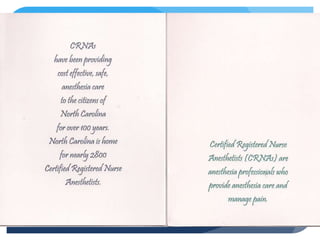 CRNAs
have been providing
cost effective, safe,
anesthesia care
to the citizens of
North Carolina
for over 100 years.
North Carolina is home
for nearly 2800
Certified Registered Nurse
Anesthetists.
Certified Registered Nurse
Anesthetists (CRNAs) are
anesthesia professionals who
provide anesthesia care and
manage pain.